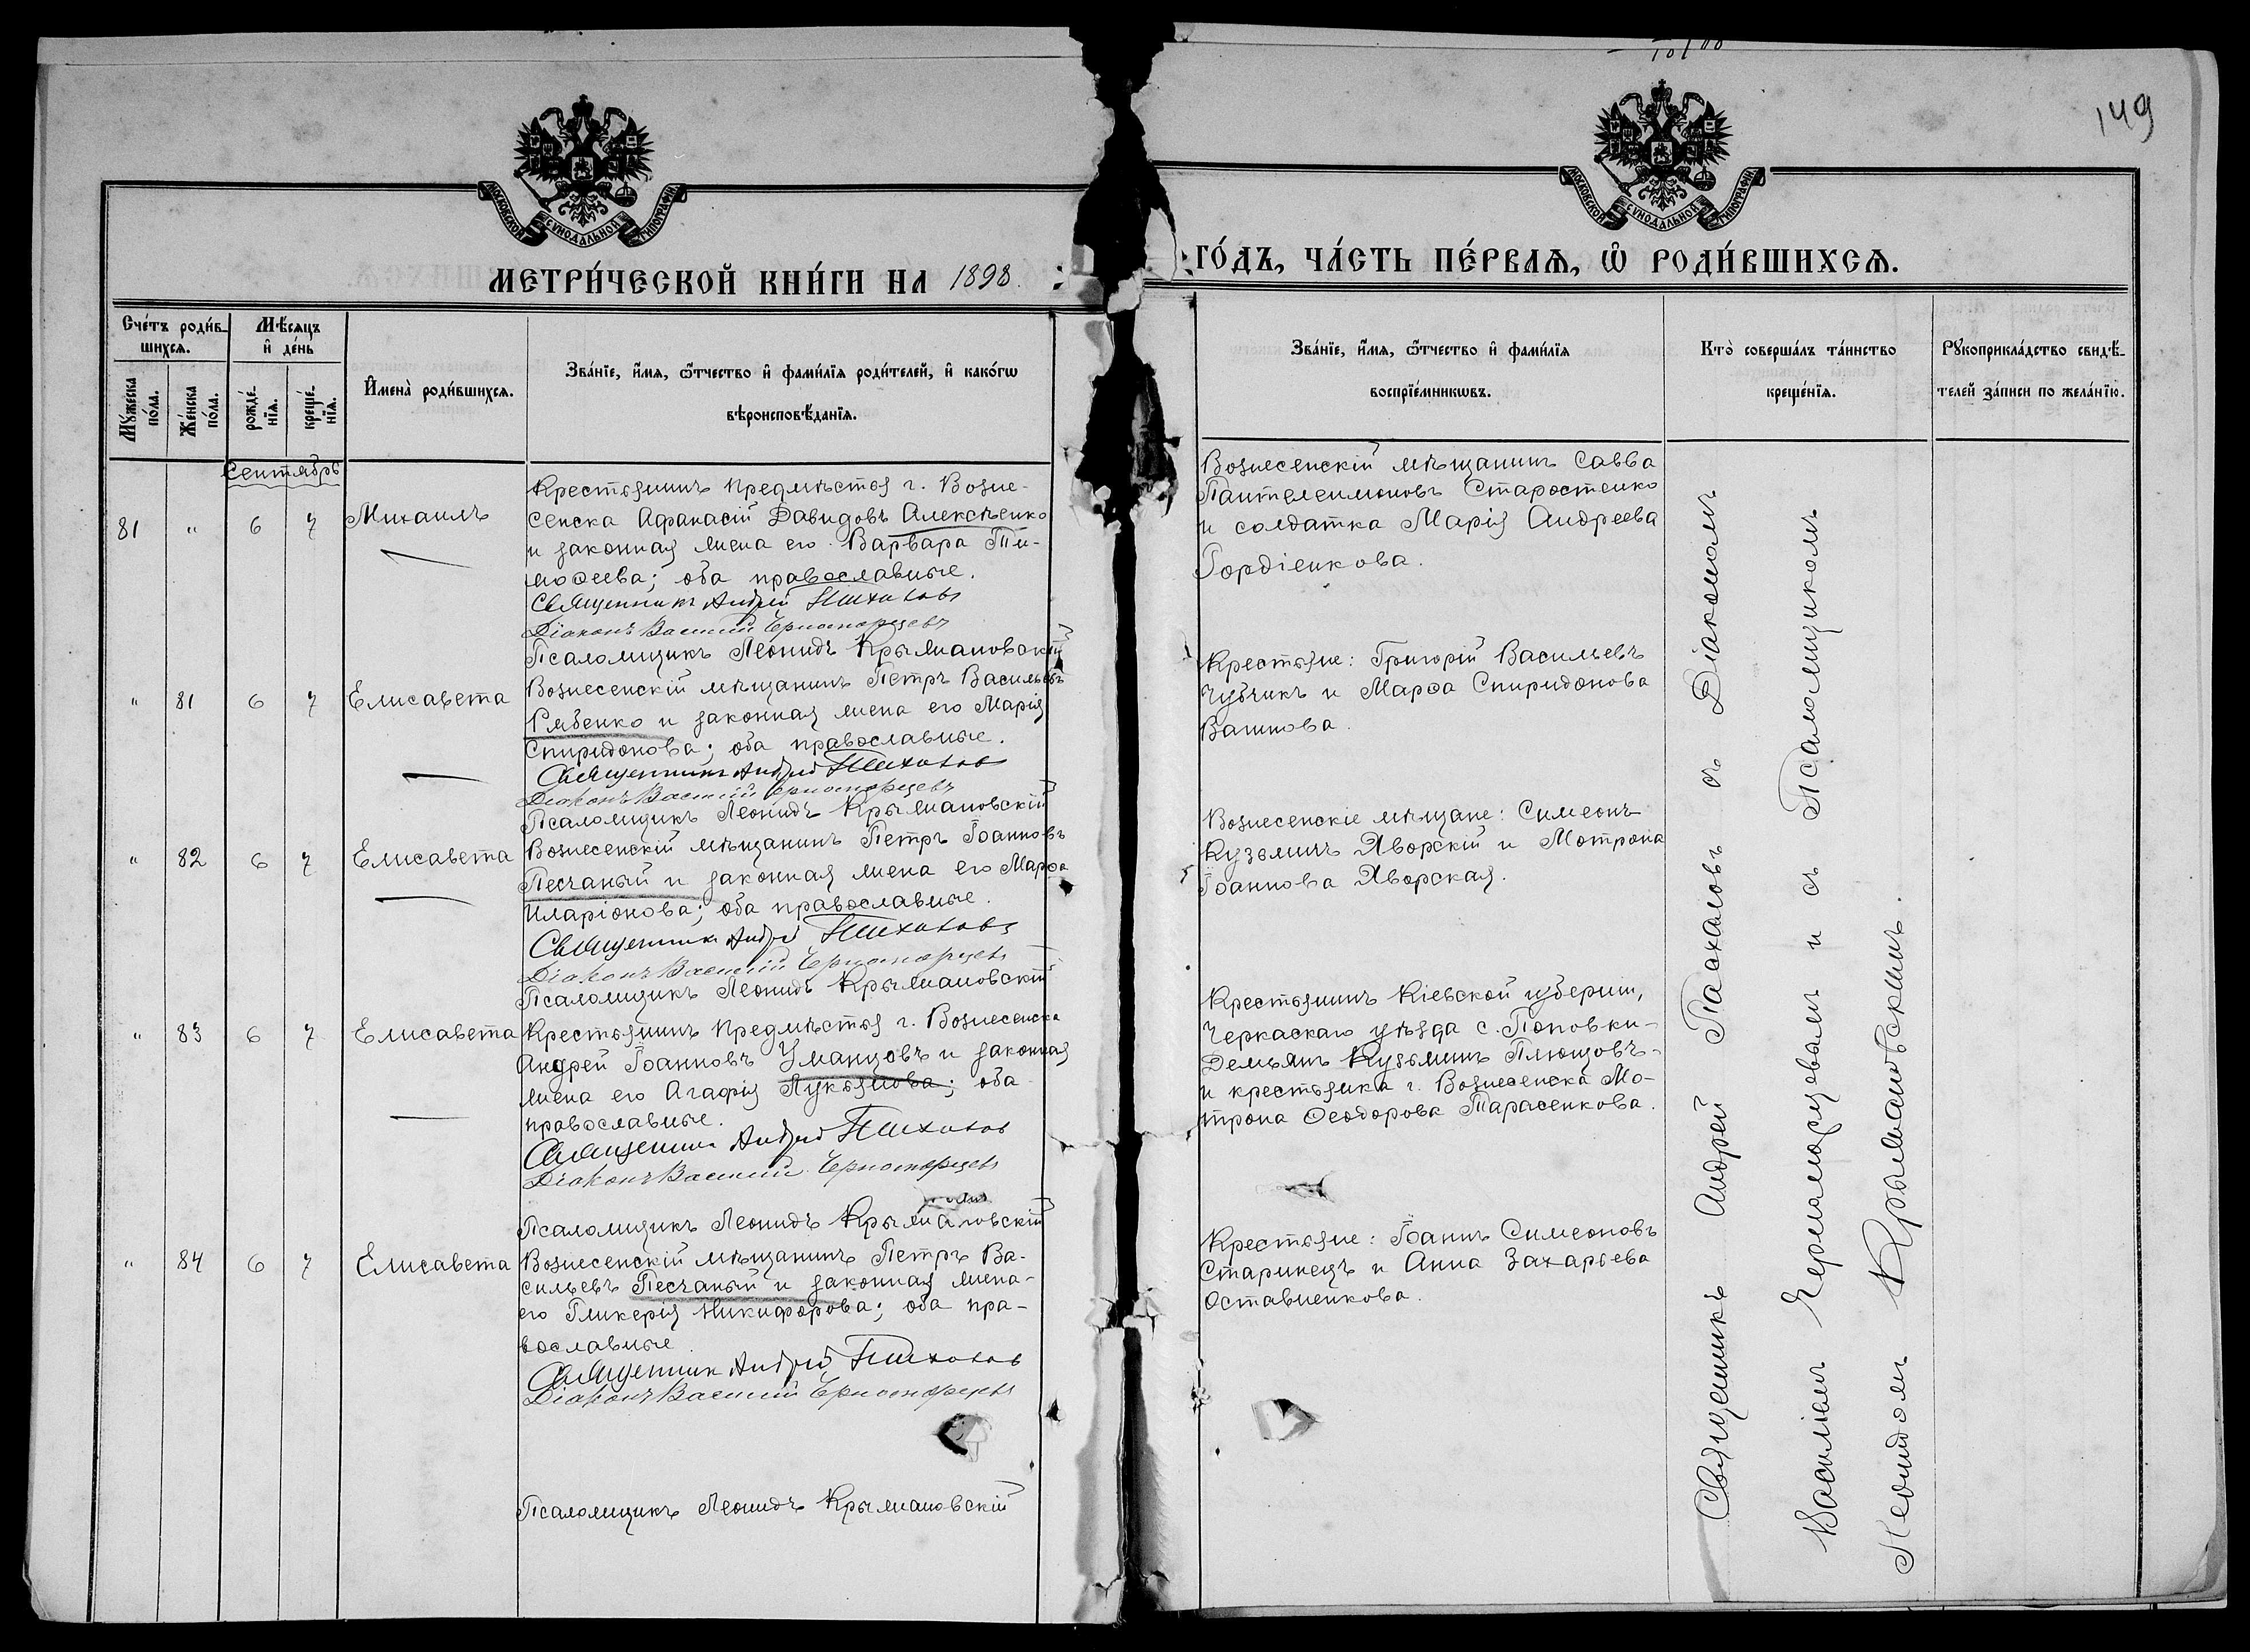 149
МОСКОВСКОЙ СУНОДАЛЬНОЙ ТИПОГРАФІИ
МОСКОВСКОЙ СУНОДАЛЬНОЙ ТИПОГРАФІИ
МЕТРИ́ЧЕСКОЙ КНИ́ГИ НА 1898
ГО́ДЪ, ЧА́СТЬ ПЕ́РВАѦ, Ѽ РОДИ́ВШИХСѦ.
Сче́тъ роди́в-
шихсѧ.
Мѣ́сѧцъ
и҆ де́нь
Мꙋ́жеска
по́ла.
Же́нска
по́ла.
рожде́-
нїѧ.
креще́-
нїѧ.
И҆мена̀ роди́вшихсѧ.
Зва́нїе, и҆́мѧ, ѻ҆́тчество и҆ фами́лїѧ роди́телей, и҆ како́гѡ
вѣроисповѣ́данїѧ.
Зва́нїе, и҆́мѧ, ѻ҆́тчество и҆ фами́лїѧ
воспрїе́мникѡвъ.
Кто̀ соверша́лъ та́инство
креще́нїѧ.
Рꙋкоприкла́дство свидѣ́-
телей за́писи по жела́нїю.
Сентябрь
81 " 6 7 Михаилъ
Крестьянинъ предмѣстья г. Возне-
сенска Афанасій Давидовъ Алексѣенко
и законная жена его Варвара Ти-
моѳеева; оба православные.
Священникъ Андрей
Діаконъ Василій Черноморцевъ
Псаломщикъ Леонидъ Крыжановскій
Вознесенскій мѣщанинъ Савва
Пантелеимоновъ Старостенко
и солдатка Марія Андреева
Гордіенкова.
" 81 6 7 Елисавета
Вознесенскій мѣщанинъ Петръ Васильевъ
Рябенко и законная жена его Марія
Спиридонова; оба православные.
Священникъ Андрей
Діаконъ Василій Черноморцевъ
Псаломщикъ Леонидъ Крыжановскій
Крестьяне: Григорій Васильевъ
Чубчикъ и Марѳа Спиридонова
" 82 6 7 Елисавета
Вознесенскій мѣщанинъ Петръ Іоанновъ
Песчаный и законная жена его Марѳа
Иларіонова; оба православные.
Священникъ Андрей
Діаконъ Василій Черноморцевъ
Псаломщикъ Леонидъ Крыжановскій
Вознесенскіе мѣщане: Симеонъ
Кузьминъ Яворскій и Мотрона
Іоаннова Яворская.
" 83 6 7 Елисавета
Крестьянинъ предмѣстья г. Вознесенска
Андрей Іоанновъ Уманцовъ и законная
жена его Агафія Лукьянова; оба
православные.
Священникъ Андрей
Діаконъ Василій Черноморцевъ
Псаломщикъ Леонидъ Крыжановскій
Крестьянинъ Кіевской губерніи,
Черкаскаго уѣзда с. Поповки-
Демьянъ Кузьминъ Плющовъ-
и крестьянка г. Вознесенска Мо-
трона Ѳеодорова Тарасенкова.
" 84 6 7 Елисавета
Вознесенскій мѣщанинъ Петръ Ва-
сильевъ Песчаный и законная жена-
его Гликерія Никифорова; оба пра-
вославные.
Священникъ Андрей
Діаконъ Василій Черноморцевъ
Псаломщикъ Леонидъ Крыжановскій
Крестьяне: Іоаннъ Симеоновъ
Старинецъ и Анна Захарьева
Священникъ Андрей съ Діакономъ
Василіемъ Черноморцевымъ и съ Псаломщикомъ
Леонидомъ Крыжановскимъ.